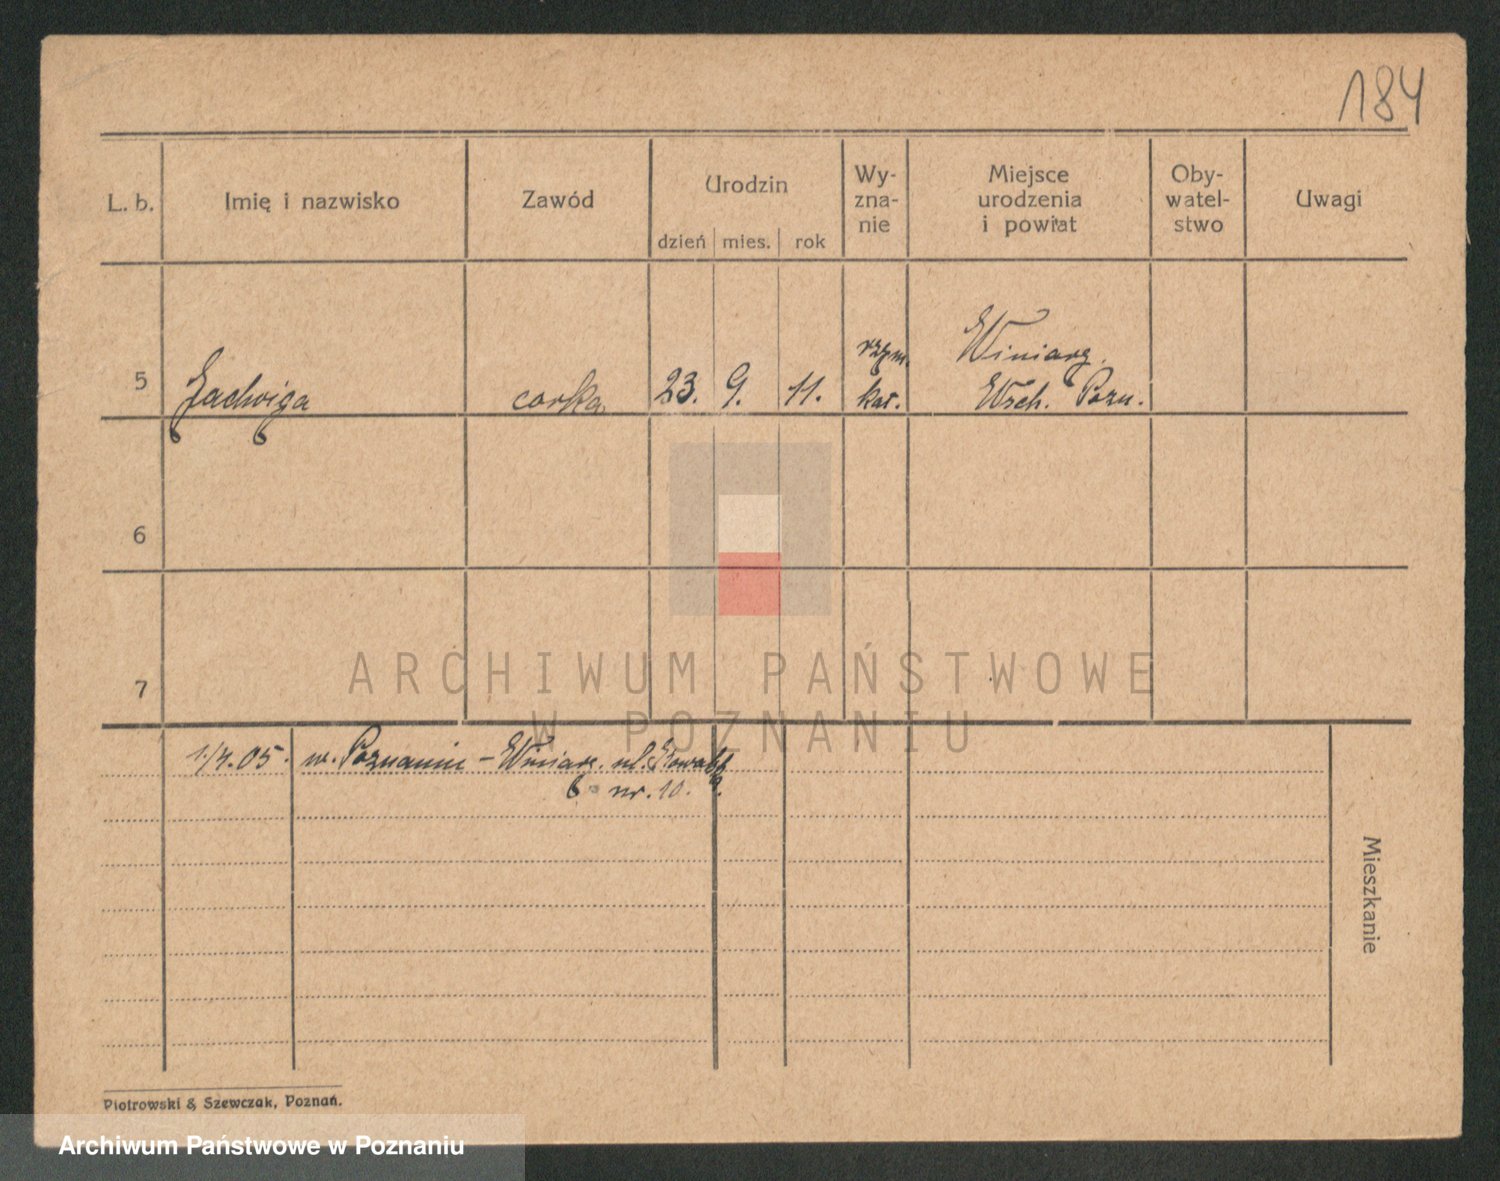 184
L. b.
Imię i nazwisko
Zawód
Urodzin
dzień mies. rok
Wy-
zna-
nie
Miejsce
urodzenia
i powiat
Oby-
watel-
stwo
Uwagi
5 Jadwiga corka 23. 9. 11. rzym. kat.
Winiary.
Wsch. Pozn.
6
7
ARCHIWUM PAŃSTWOWE
W POZNANIU
1/4.05. w. Poznaniu - Winiary. ul.
nr. 10.
Mieszkanie
Piotrowski & Szewczak, Poznań.
Archiwum Państwowe w Poznaniu